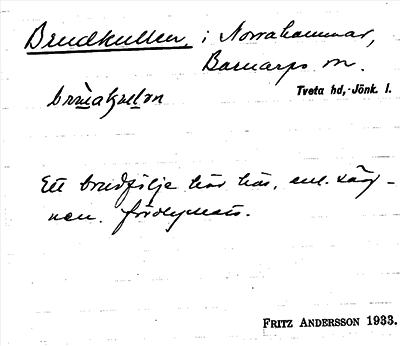 Brudkullen, i Norrahammar,
Barnarps sn.
Tveta hd, Jönk. l.
Ett brudfölje har här, enl. säg-
nen, fördrunknat.
FRITZ ANDERSSON 1933.